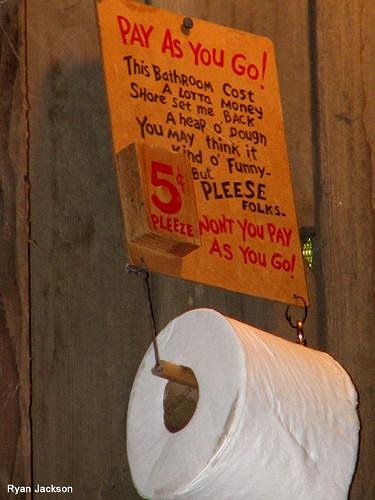 PAY AS YOU GO!
This Bathroom Cost
A LOTTA MONEY
Shore set me BACK
A heap o' Dough
You MAY think it
kind o' Funny-
But
PLEESE
FOLKS-
5¢
PLEEZE
WONT YOU PAY
AS YOU GO!
Ryan Jackson